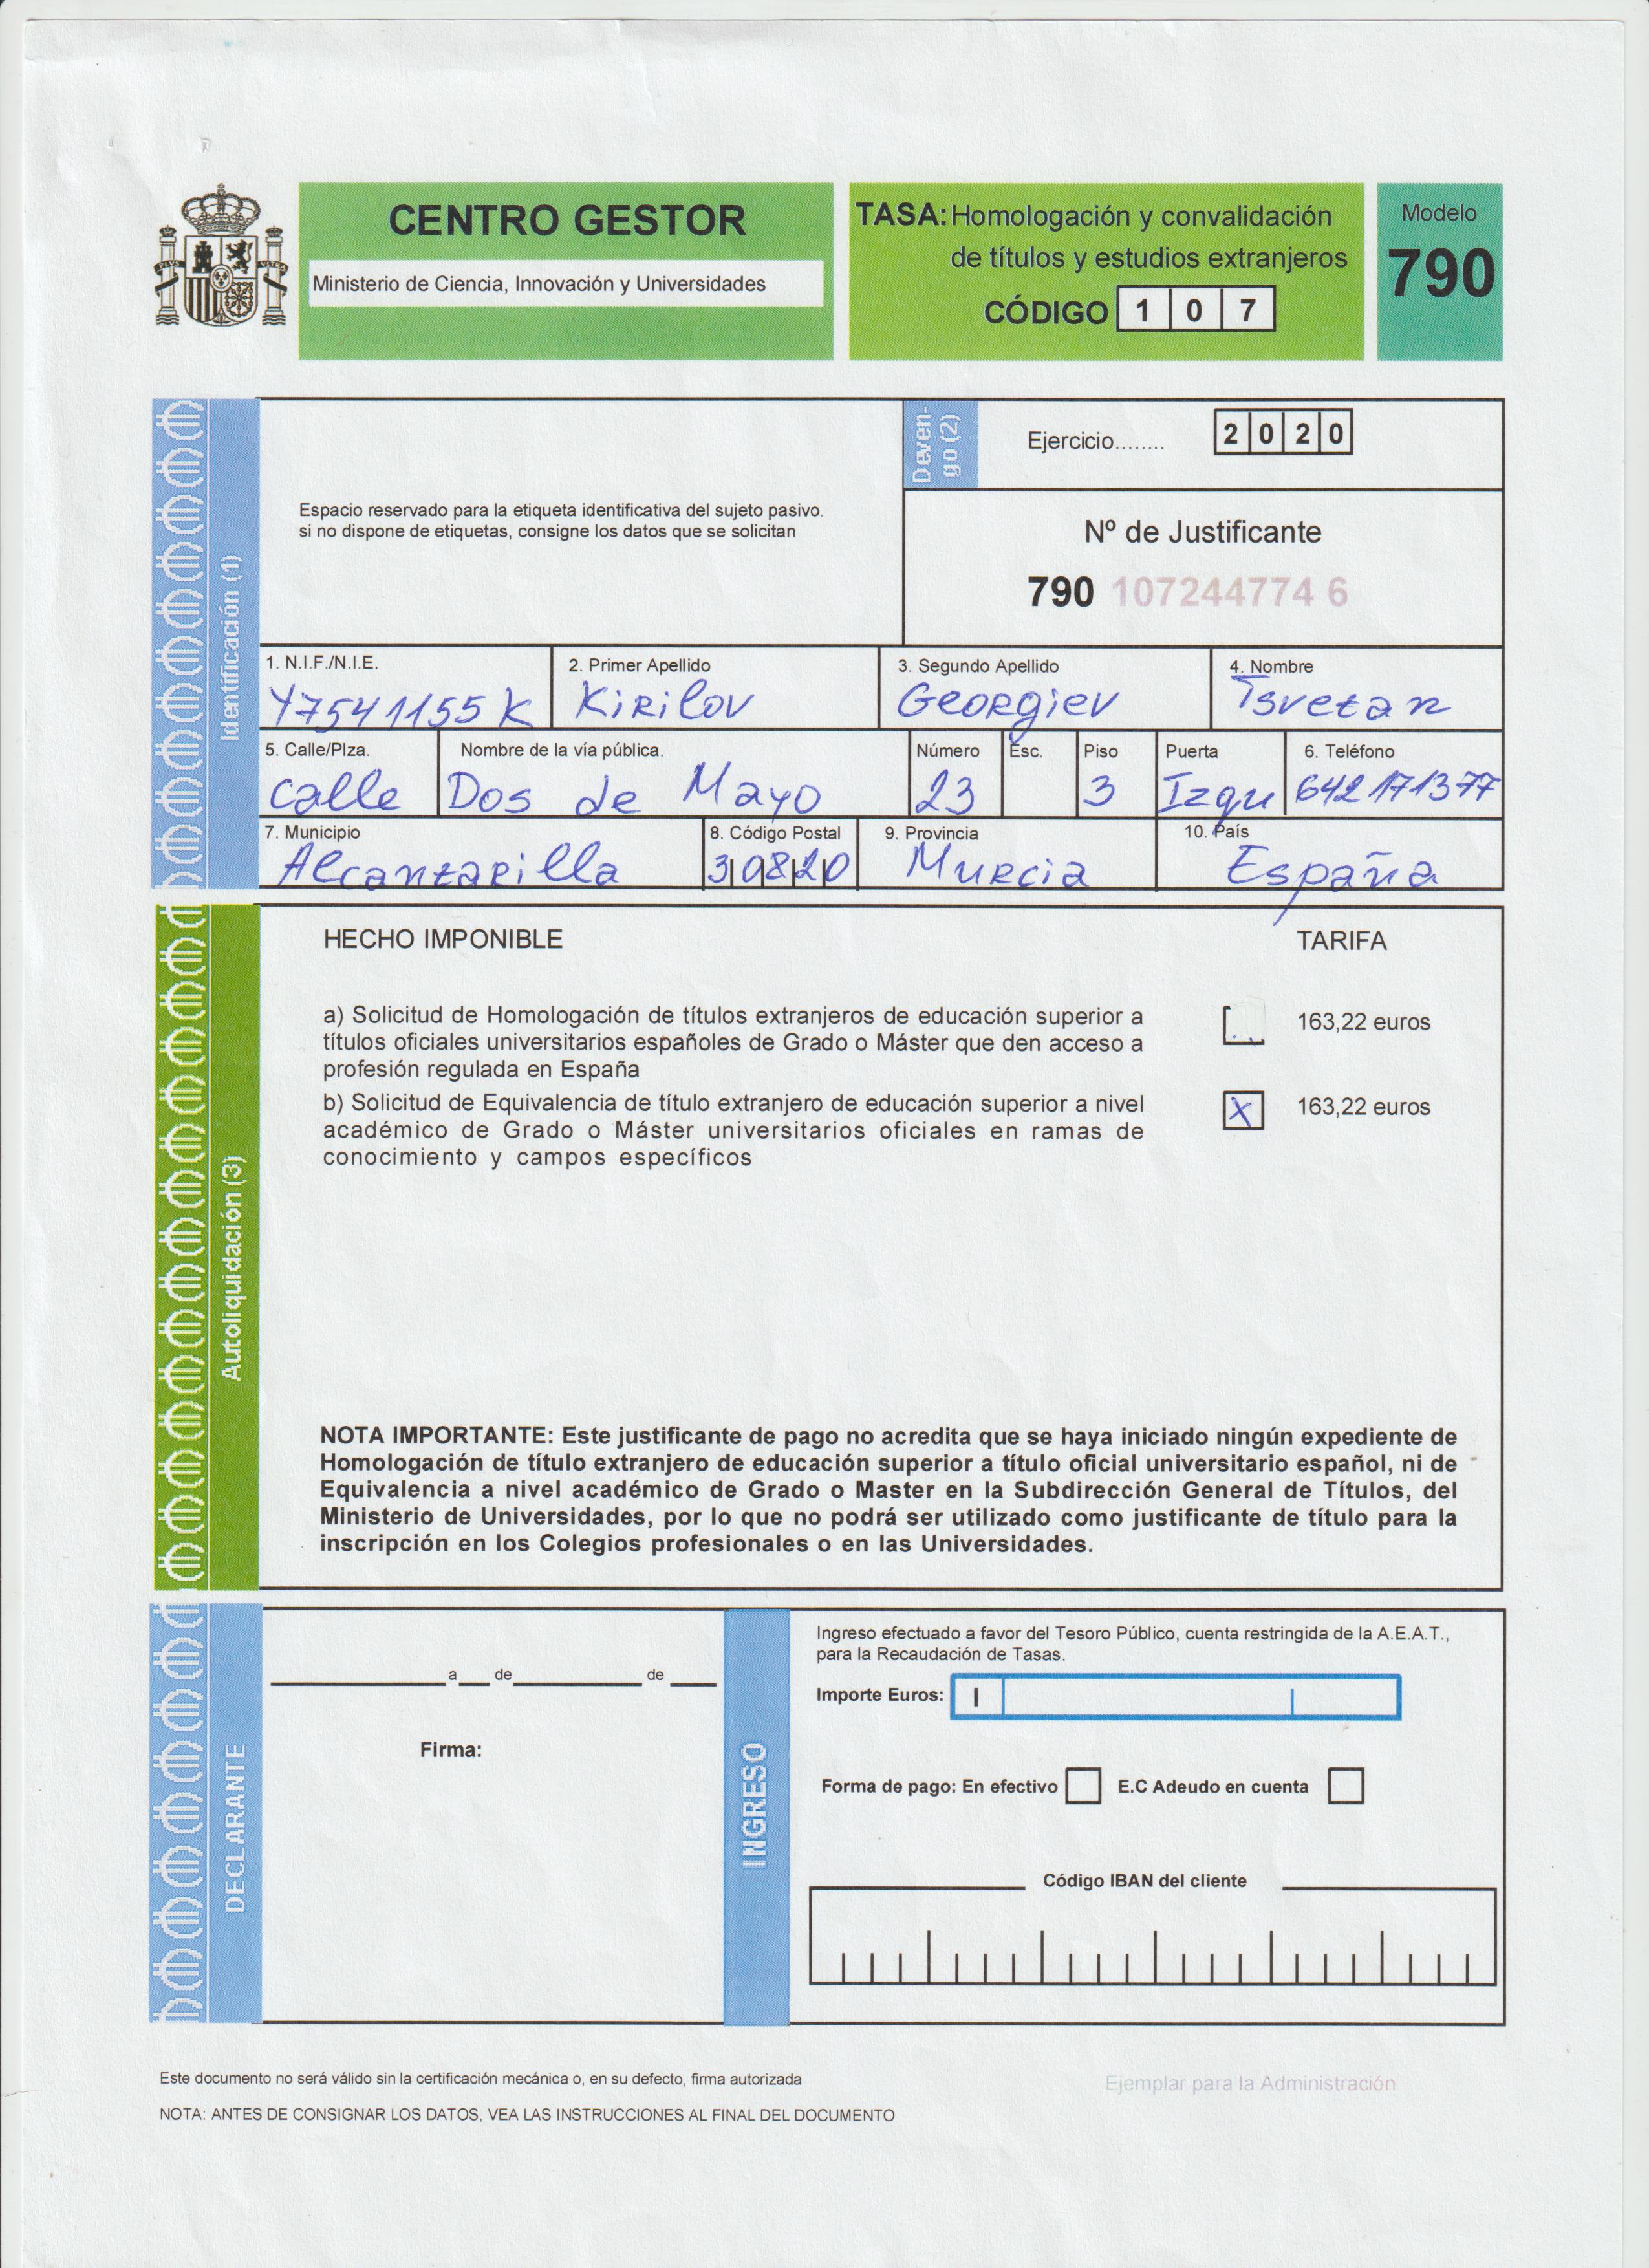 CENTRO GESTOR
Ministerio de Ciencia, Innovación y Universidades
TASA: Homologación y convalidación
de títulos y estudios extranjeros
CÓDIGO 1 0 7
Modelo
790
PLVS VLTRA
Identificación (1)
Espacio reservado para la etiqueta identificativa del sujeto pasivo.
si no dispone de etiquetas, consigne los datos que se solicitan
Deven-
go (2)
Ejercicio........ 2 0 2 0
Nº de Justificante
790 107244774 6
1. N.I.F./N.I.E. 2. Primer Apellido 3. Segundo Apellido 4. Nombre
Y7541155K Kirilov Georgiev Tsvetan
5. Calle/Plza. Nombre de la vía pública. Número Esc. Piso Puerta 6. Teléfono
calle Dos de Mayo 23 3 Izqu 642171377
7. Municipio 8. Código Postal 9. Provincia 10. País
Alcantarilla 30820 Murcia España
Autoliquidación (3)
HECHO IMPONIBLE TARIFA
a) Solicitud de Homologación de títulos extranjeros de educación superior a
títulos oficiales universitarios españoles de Grado o Máster que den acceso a
profesión regulada en España
163,22 euros
b) Solicitud de Equivalencia de título extranjero de educación superior a nivel
académico de Grado o Máster universitarios oficiales en ramas de
conocimiento y campos específicos
X 163,22 euros
NOTA IMPORTANTE: Este justificante de pago no acredita que se haya iniciado ningún expediente de
Homologación de título extranjero de educación superior a título oficial universitario español, ni de
Equivalencia a nivel académico de Grado o Master en la Subdirección General de Títulos, del
Ministerio de Universidades, por lo que no podrá ser utilizado como justificante de título para la
inscripción en los Colegios profesionales o en las Universidades.
DECLARANTE
a de de
Firma:
INGRESO
Ingreso efectuado a favor del Tesoro Público, cuenta restringida de la A.E.A.T.,
para la Recaudación de Tasas.
Importe Euros: I
Forma de pago: En efectivo E.C Adeudo en cuenta
Código IBAN del cliente
Este documento no será válido sin la certificación mecánica o, en su defecto, firma autorizada
Ejemplar para la Administración
NOTA: ANTES DE CONSIGNAR LOS DATOS, VEA LAS INSTRUCCIONES AL FINAL DEL DOCUMENTO